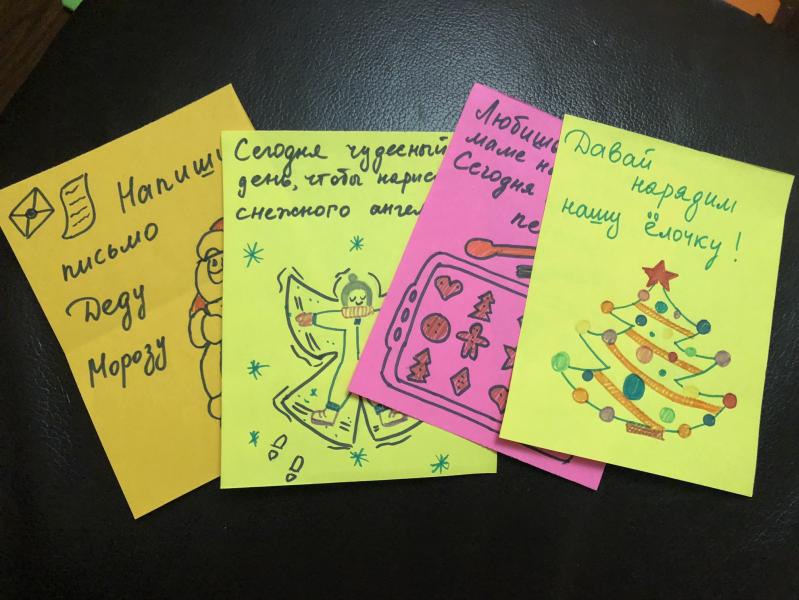 Напиши
письмо
Деду
Морозу
Сегодня чудесный
день, чтобы
снежного
маме
Сегодня
Давай
нарядим
нашу ёлочку!